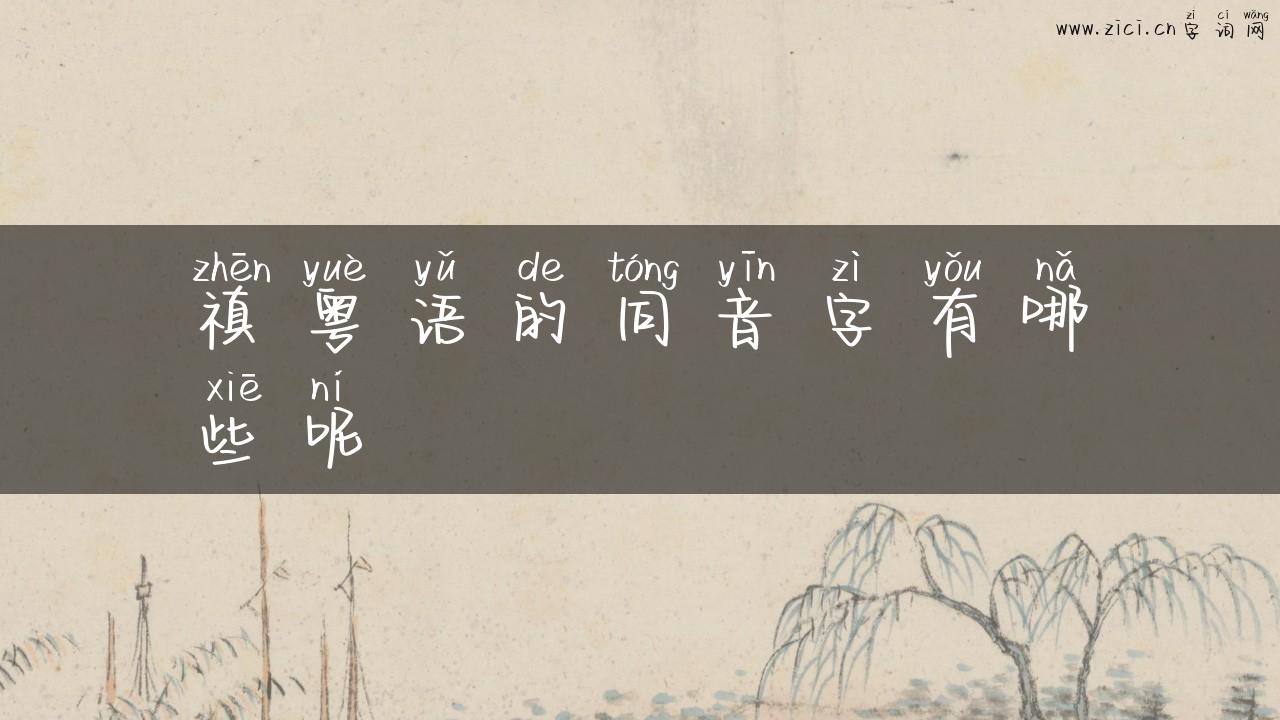 zì cí wǎng
www.zici.cn字词网
zhēn yuè yǔ de tóng yīn zì yǒu nǎ
禛粤语的同音字有哪
xiē ní
些呢